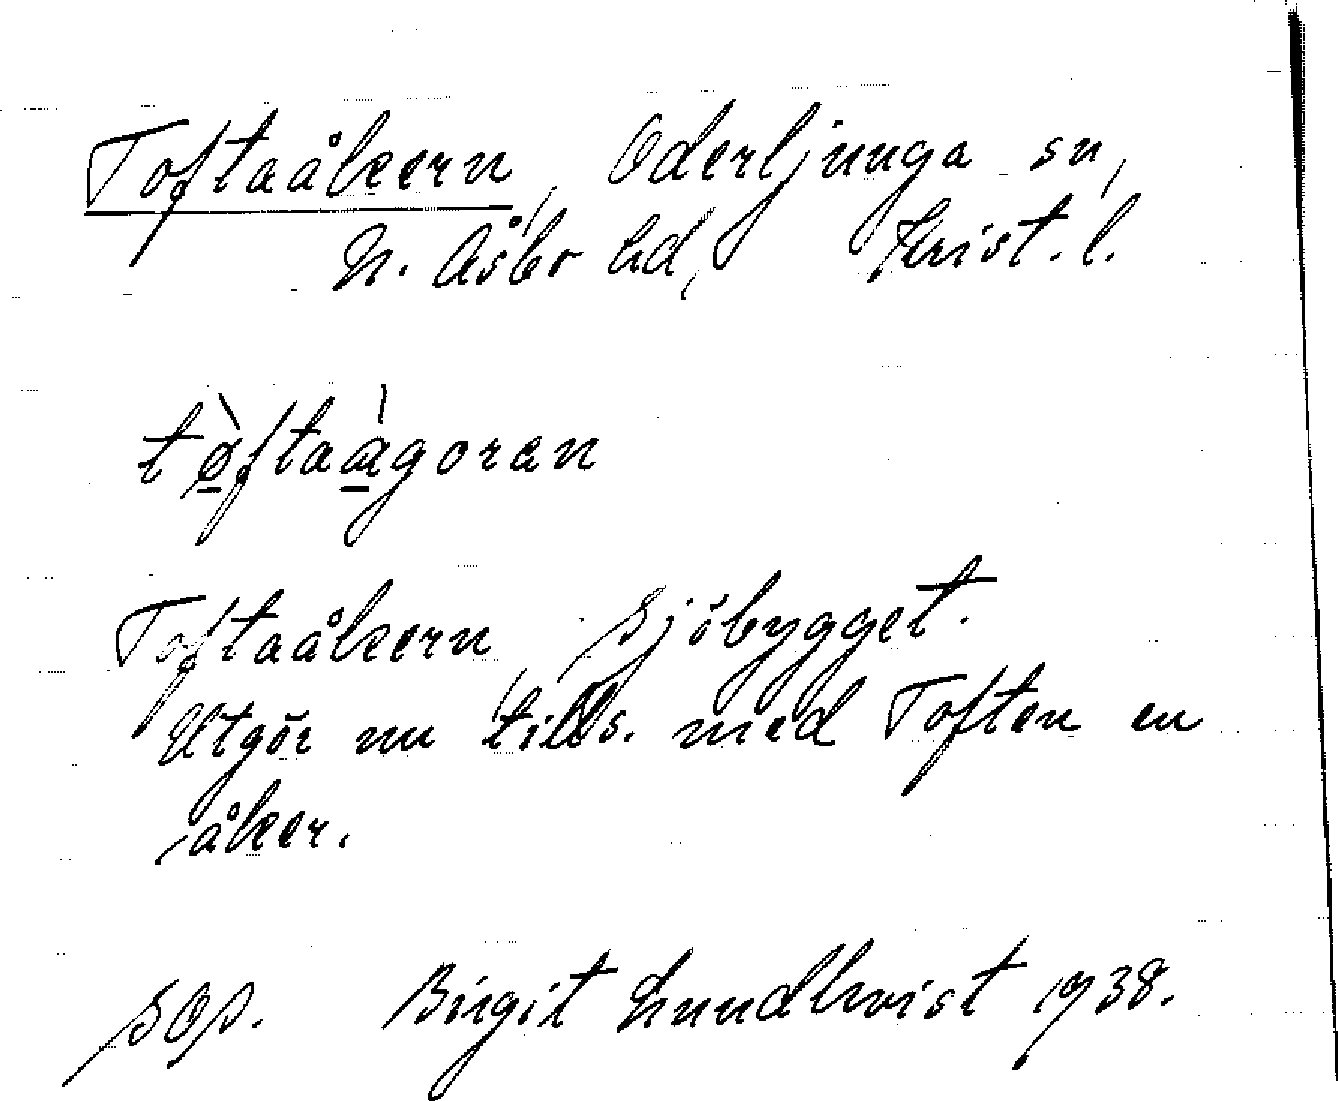 Toftaåkern, Oderljunga sn,
N. Åsbo hd, Krist. l.
tø̀ftaàgoran
Toftaåkern, Sjöbygget.
Utgör nu tills. med Toften en
åker.
Birgit Lundkvist 1938.